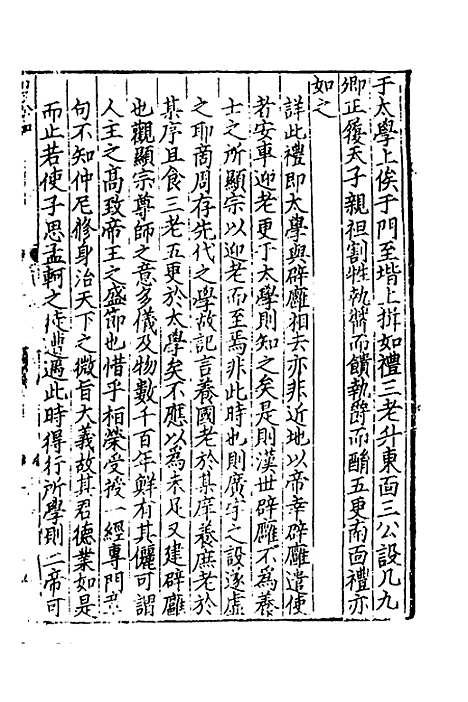 于太學上俟于門至堦上拜如禮三老升東面三公設几九
卿正履天子親袒割牲執醬而饋執爵而酳五更南面禮亦
如之
詳此禮即太學與辟廱相去亦非近地以帝幸辟廱遣使
者安車迎老更于太學則知之矣是則漢世辟廱不為養
士之所顯宗以迎老而至焉非此時也則廣宇之設遂虛
之耶商周存先代之學故記言養國老於某庠養庶老於
某序且食三老五更於太學矣不應以為未足又建辟廱
也觀顯宗尊師之意多儀及物數千百年鮮有其儷可謂
人王之高致帝王之盛節也惜乎相榮受授一經專門章
句不知仲尼修身治天下之微旨大義故其君德業如是
而止若使子思孟軻之徒遭遇此時得行所學則二帝可